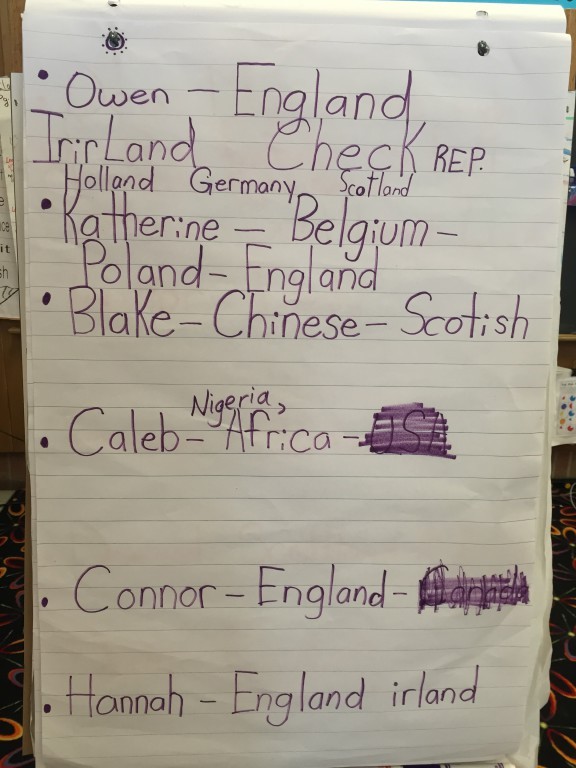 • Owen - England
IrirLand Check REP.
Holland Germany Scotland
• Katherine - Belgium -
Poland - England
• Blake - Chinese - Scotish
Nigeria,
• Caleb - Africa - USA
• Connor - England - Canada
• Hannah - England irland